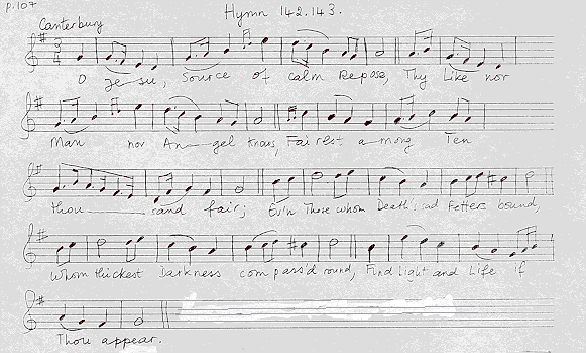 p.107
Hymn 142.143.
Canterbury
O Je-su, Source of calm Repose, Thy Like nor
Man nor An-gel knows, Fairest a-mong Ten
thou- sand fair; Ev'n Those whom Death's sad Fetters bound,
Whom thickest Darkness compass'd round, Find light and Life if
Thou appear.